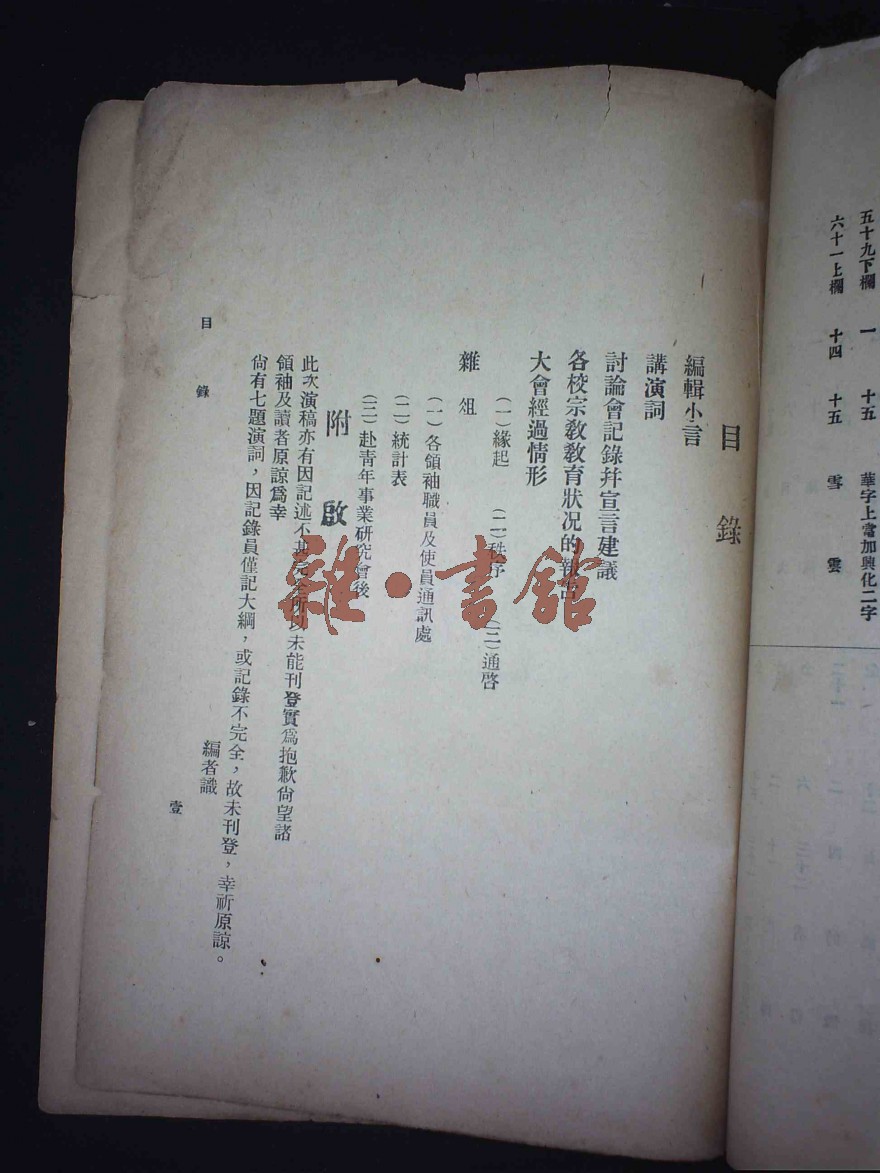 五十九下欄 一 十五 華字上當加興化二字
六十一上欄 十四 十五 雪 雲
目錄
編輯小言
講演詞
討論會記錄幷宣言建議
各校宗敎敎育狀况的報告
大會經過情形
(一)緣起 (二)秩序 (三)通啓
雜俎
(一)各領袖職員及使員通訊處
(二)統計表
(三)赴靑年事業研究會後
附啟
此次演稿亦有因記述不甚完全所以未能刊登實爲抱歉尙望諸
領袖及讀者原諒爲幸
尙有七題演詞，因記錄員僅記大綱，或記錄不完全，故未刊登，幸祈原諒。
編者識
目錄
壹
雜·書館